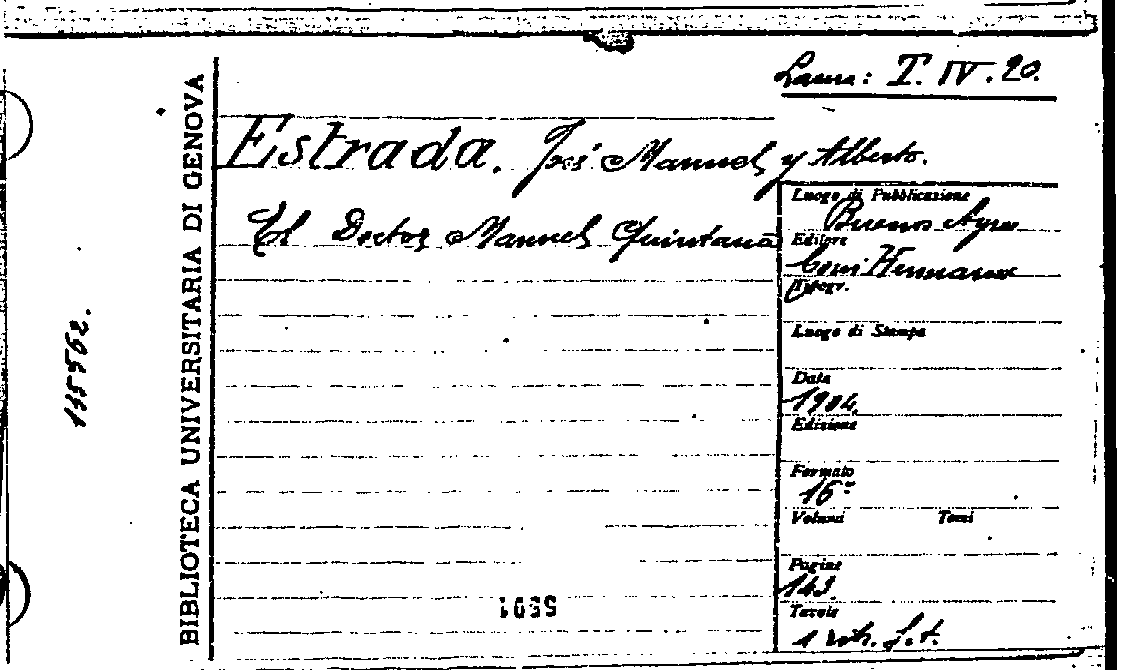 Laura: T. IV. 20.
Estrada. José Manuel y Alberto.
El Doctor Manuel Quintana
Luogo di Pubblicazione
Buenos Ayres
Editore
Coni Hermanos
Tipogr.
Luogo di Stampa
Data
1904.
Edizione
Formato
16°
Volumi Tomi
Pagine
143.
Tavole
1 ritr. f. t.
BIBLIOTECA UNIVERSITARIA DI GENOVA